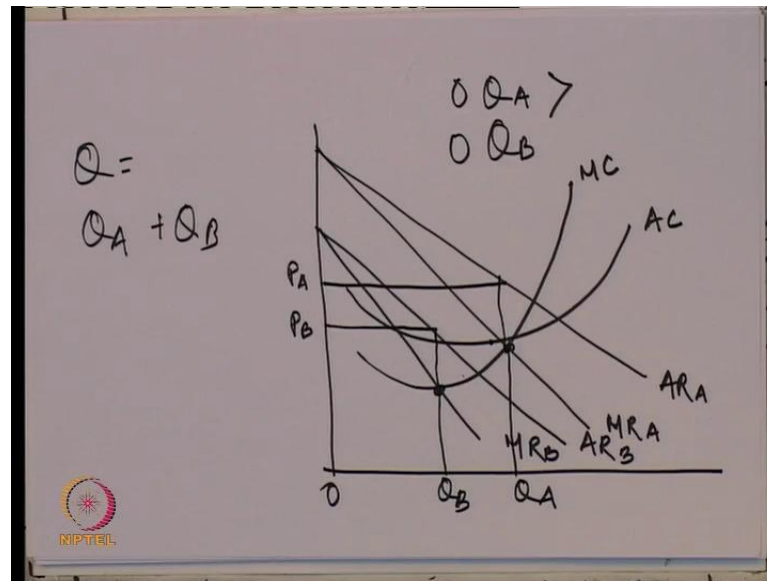 O Q_A >
O Q_B
Q =
Q_A + Q_B
MC
AC
P_A
P_B
AR_A
MR_A
MR_B
AR_B
O
Q_B
Q_A
NPTEL